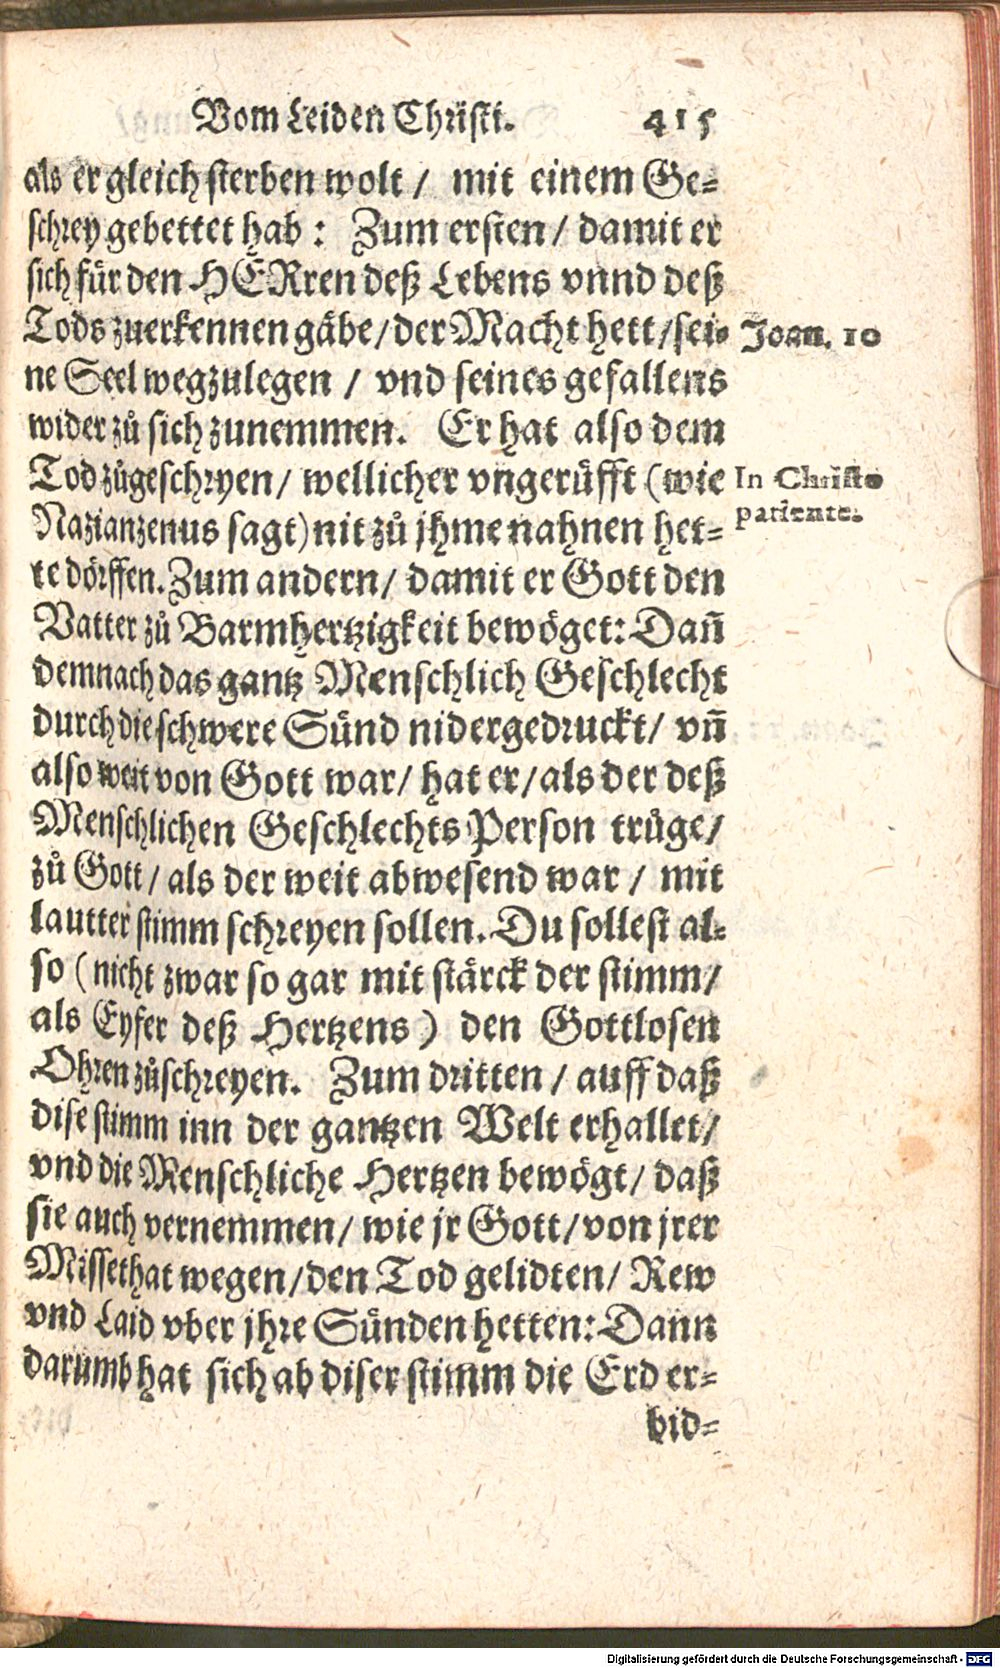 Vom Leiden Christi. 415
als er gleich sterben wolt / mit einem Ge-
schrey gebettet hab : Zum ersten / damit er
sich für den HERren deß Lebens vnnd deß
Tods zuerkennen gäbe / der Macht hett / sei- Joan. 10
ne Seel wegzulegen / vnd seines gefallens
wider zů sich zunemmen. Er hat also dem
Tod zůgeschryen / wellicher vngerüfft (wie In Christo
Nazianzenus sagt) nit zů jhme nahnen het- patiente.
te dörffen. Zum andern / damit er Gott den
Vatter zů Barmhertzigkeit bewöget: Dañ
demnach das gantz Menschlich Geschlecht
durch die schwere Sünd nidergedruckt / vñ
also weit von Gott war / hat er / als der deß
Menschlichen Geschlechts Person trüge /
zů Gott / als der weit abwesend war / mit
lautter stimm schreyen sollen. Du sollest al-
so (nicht zwar so gar mit stärck der stimm /
als Eyfer deß Hertzens) den Gottlosen
Ohren zůschreyen. Zum dritten / auff daß
dise stimm inn der gantzen Welt erhallet /
vnd die Menschliche Hertzen bewögt / daß
sie auch vernemmen / wie jr Gott / von jrer
Missethat wegen / den Tod gelidten / Rew
vnd Laid vber jhre Sünden hetten: Dann
darumb hat sich ab diser stimm die Erd er-
bid-
Digitalisierung gefördert durch die Deutsche Forschungsgemeinschaft - DFG